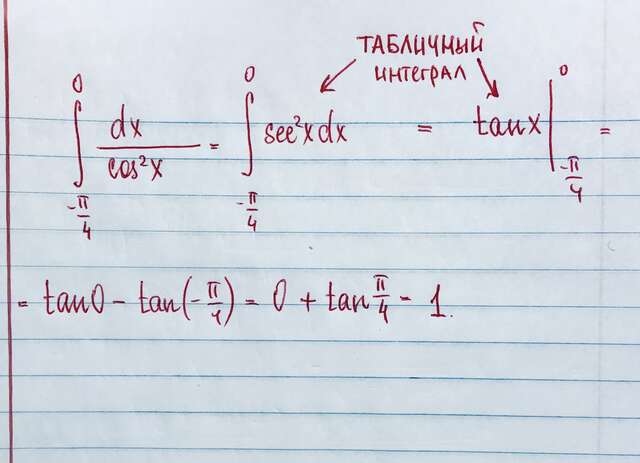 ТАБЛИЧНЫЙ
ИНТЕГРАЛ
∫_{-π/4}^{0} dx/cos²x = ∫_{-π/4}^{0} sec²x dx = tan x |_{-π/4}^{0} =
= tan0 - tan(-π/4) = 0 + tan π/4 - 1.